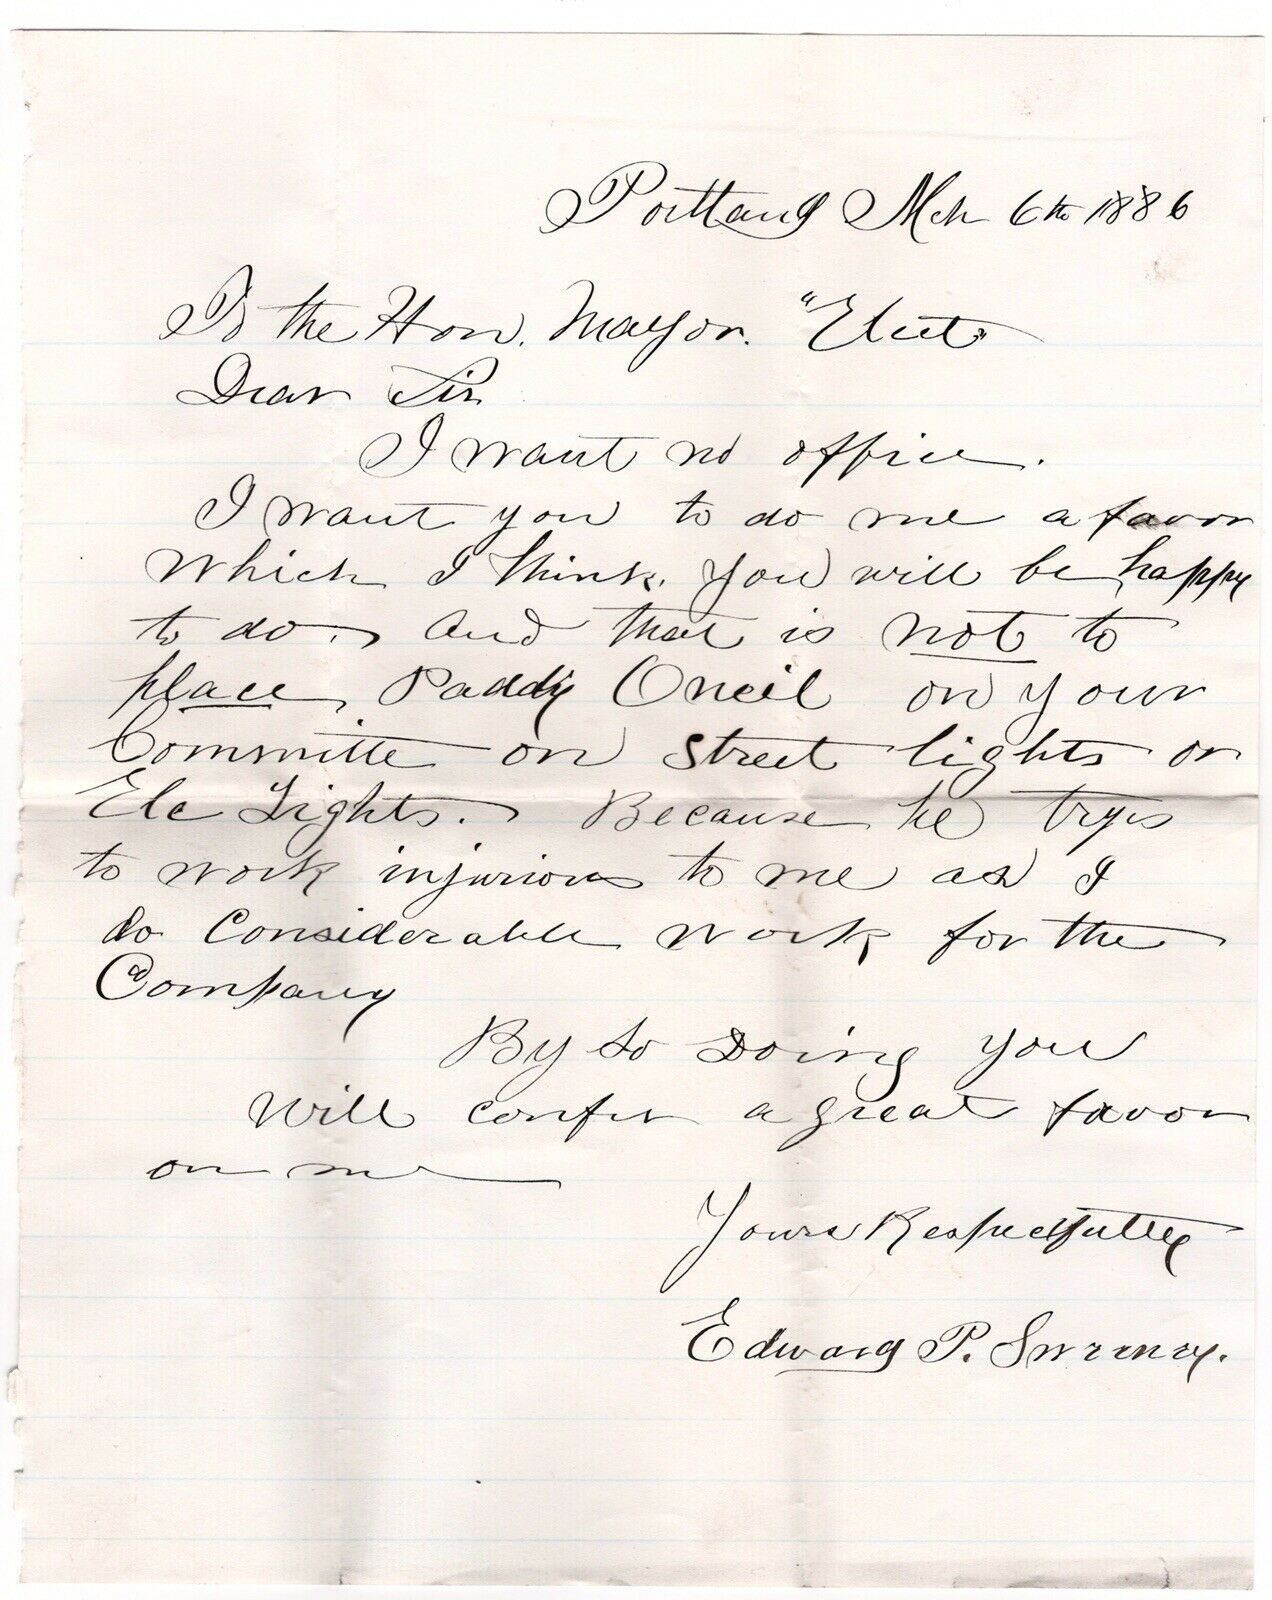 Portland Mch 6th 1886
To the Hon. Mayor. "Elect"
Dear Sir
I want no office.
I want you to do me a favor
which I think you will be happy
to do. And that is not to
place Paddy Oneil on your
Committe on Street lights or
Ele Lights. Because he trys
to work injurious to me as I
do considerable work for the
Company
By so Doing you
will confer a great favor
on me
Yours Respectfully
Edward P. Sweeney.